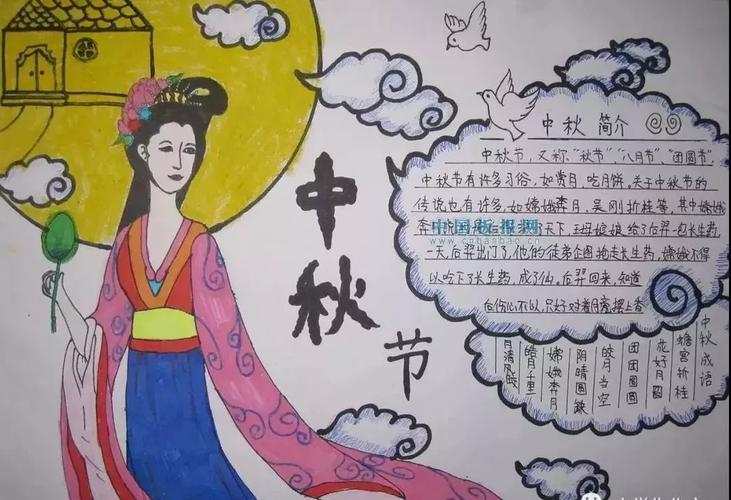 中秋节
中秋简介
中秋节，又称“秋节”、“八月节”、“团圆节”
中秋节有许多习俗，如赏月、吃月饼。关于中秋节的
传说也有许多，如嫦娥奔月、吴刚折桂等，其中嫦娥
奔月 天下，王母娘娘给了后羿一包长生药
一天，后羿出门了，他的徒弟企图抢走长生药，嫦娥不得
以吃下了长生药，成了仙。后羿回来，知道
后伤心不以，只好对着月亮摆上香
中国板报网
中秋成语
蟾宫折桂
花好月圆
团团圆圆
皎月当空
阴晴圆缺
嫦娥奔月
皓月千里
月清风皎